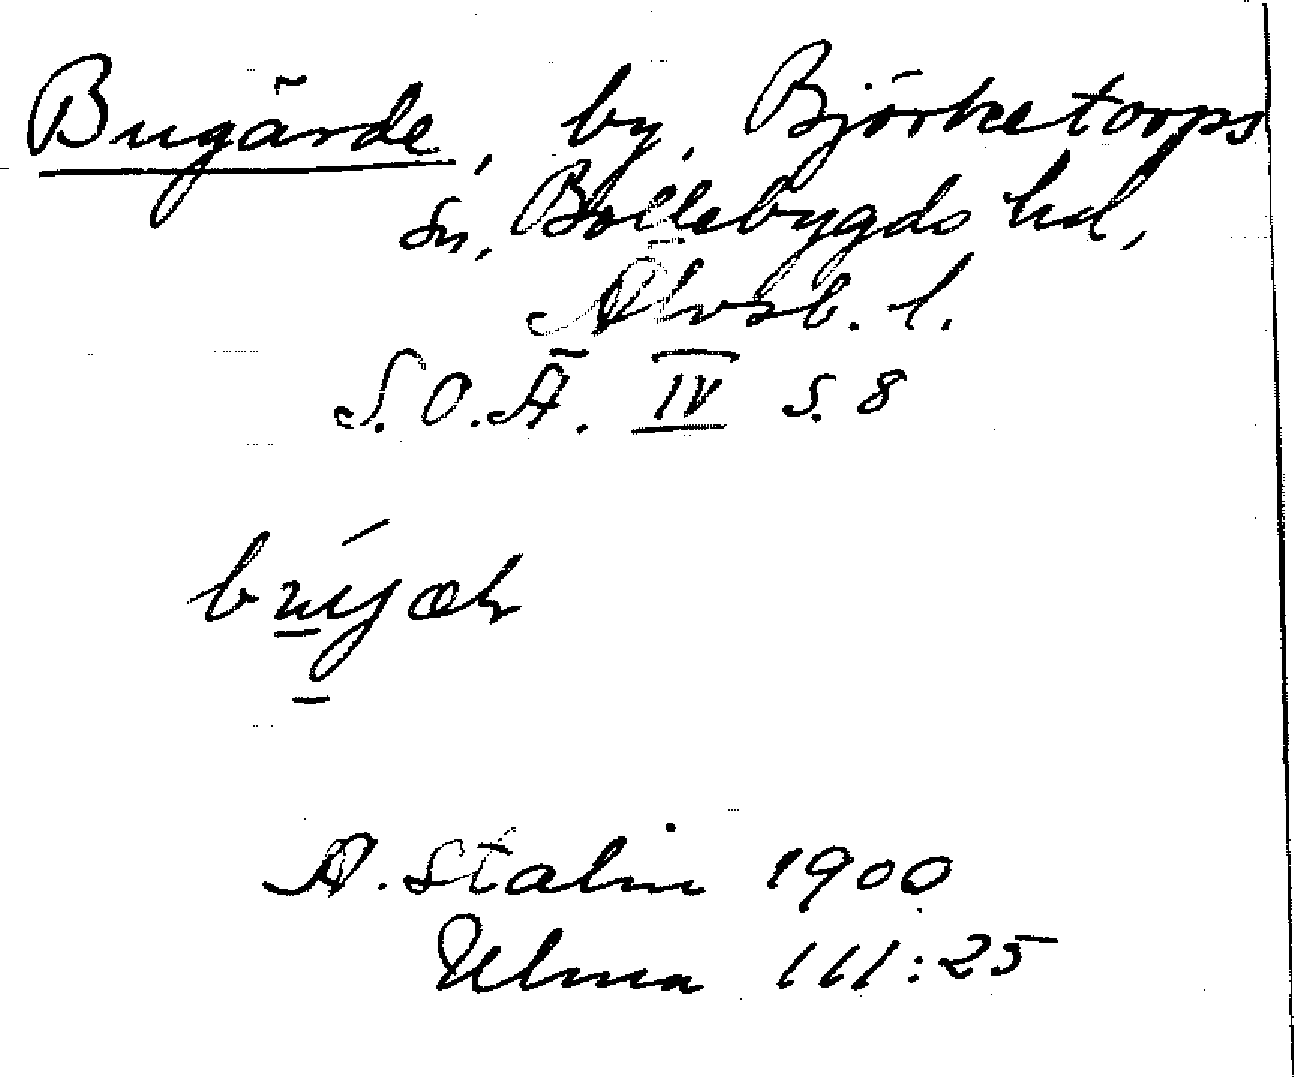 Bugärde, by, Björketorps
sn, Bollebygds hd,
Älvsb. l.
S.O.Ä. IV s. 8
A. Stalin 1900
Ulma 111:25